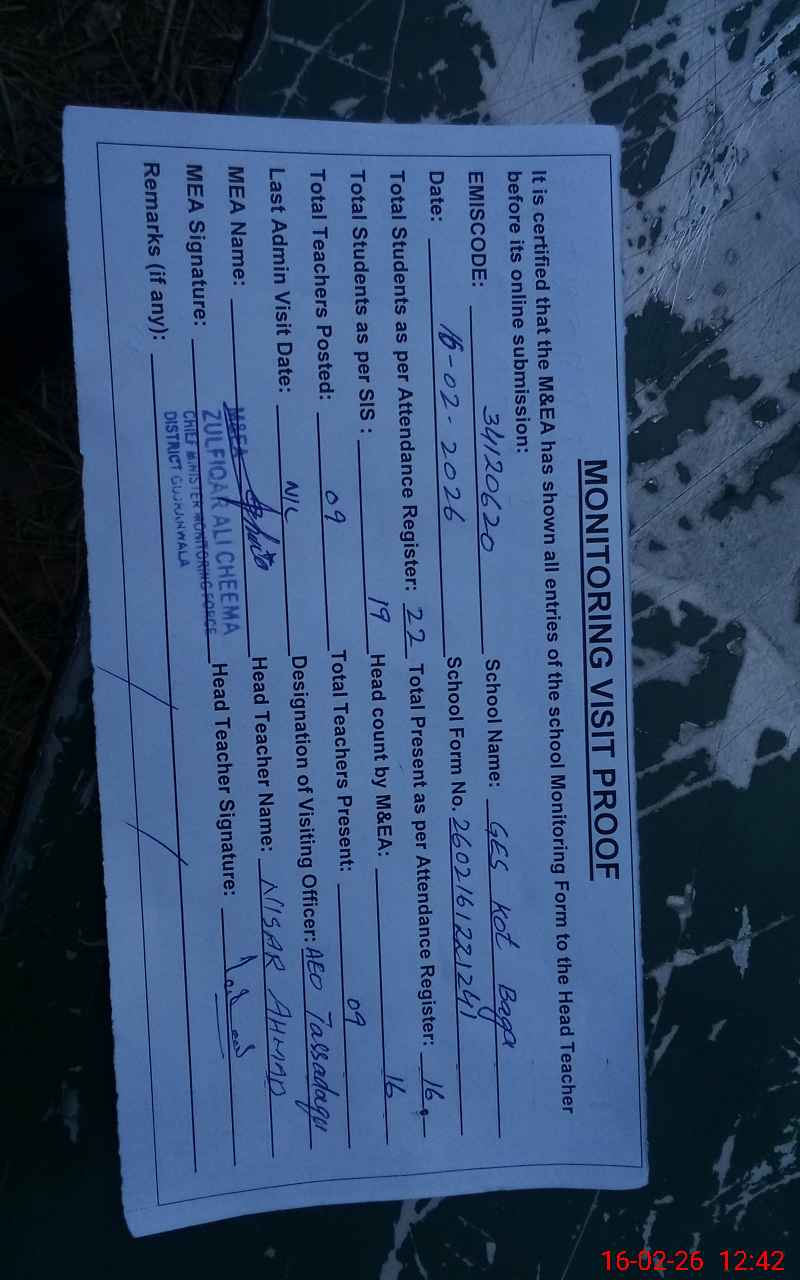 MONITORING VISIT PROOF
It is certified that the M&EA has shown all entries of the school Monitoring Form to the Head Teacher
before its online submission:
EMISCODE: 34120620 School Name: GES Kot Baga
Date: 16-02-2026 School Form No. 2602161221241
Total Students as per Attendance Register: 22 Total Present as per Attendance Register: 16
Total Students as per SIS : 19 Head count by M&EA: 16
Total Teachers Posted: 09 Total Teachers Present: 09
Last Admin Visit Date: NIL Designation of Visiting Officer: AEO Tassadaqu
MEA Name: Head Teacher Name: NISAR AHMAD
MEA Signature: Head Teacher Signature:
M&EA
ZULFIQAR ALI CHEEMA
CHIEF MINISTER MONITORING FORCE
DISTRICT GUJRANWALA
Remarks (if any):
16-02-26 12:42